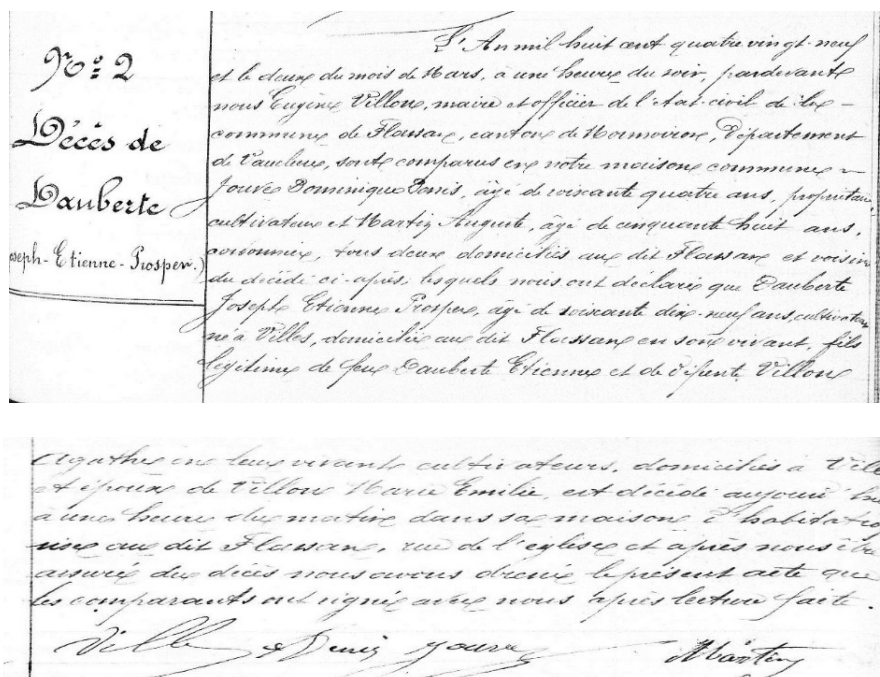 N.º 2
Décès de
Dauberte
Joseph-Etienne-Prosper.)
L'An mil huit cent quatre vingt-neuf
et le deux du mois de Mars, à une heure du soir, pardevant
nous Eugène Villon, maire et officier de l'état-civil de la
commune de Flassan, canton de Mormoiron, Département
de Vaucluse, sont comparus en notre maison commune
Jouve Dominique Denis, âgé de soixante quatre ans, propriétaire
cultivateur et Martin Auguste, âgé de cinquante huit ans,
cordonnier, tous deux domiciliés au dit Flassan et voisin
du décédé ci-après, lesquels nous ont déclaré que Dauberte
Joseph Etienne Prosper, âgé de soixante dix-neuf ans, cultivateur
né à Villes, domicilié au dit Flassan en son vivant, fils
légitime de feu Dauberte Etienne et de défunte Villon
Agathe en leur vivant cultivateurs, domiciliés à Villes
et époux de Villon Marie Emilie, est décédé aujourd'hui
à une heure du matin dans sa maison d'habitation
sise au dit Flassan, rue de l'église et après nous être
assuré du décès nous avons dressé le présent acte que
les comparants ont signé avec nous après lecture faite.
Denis Jouve Martin